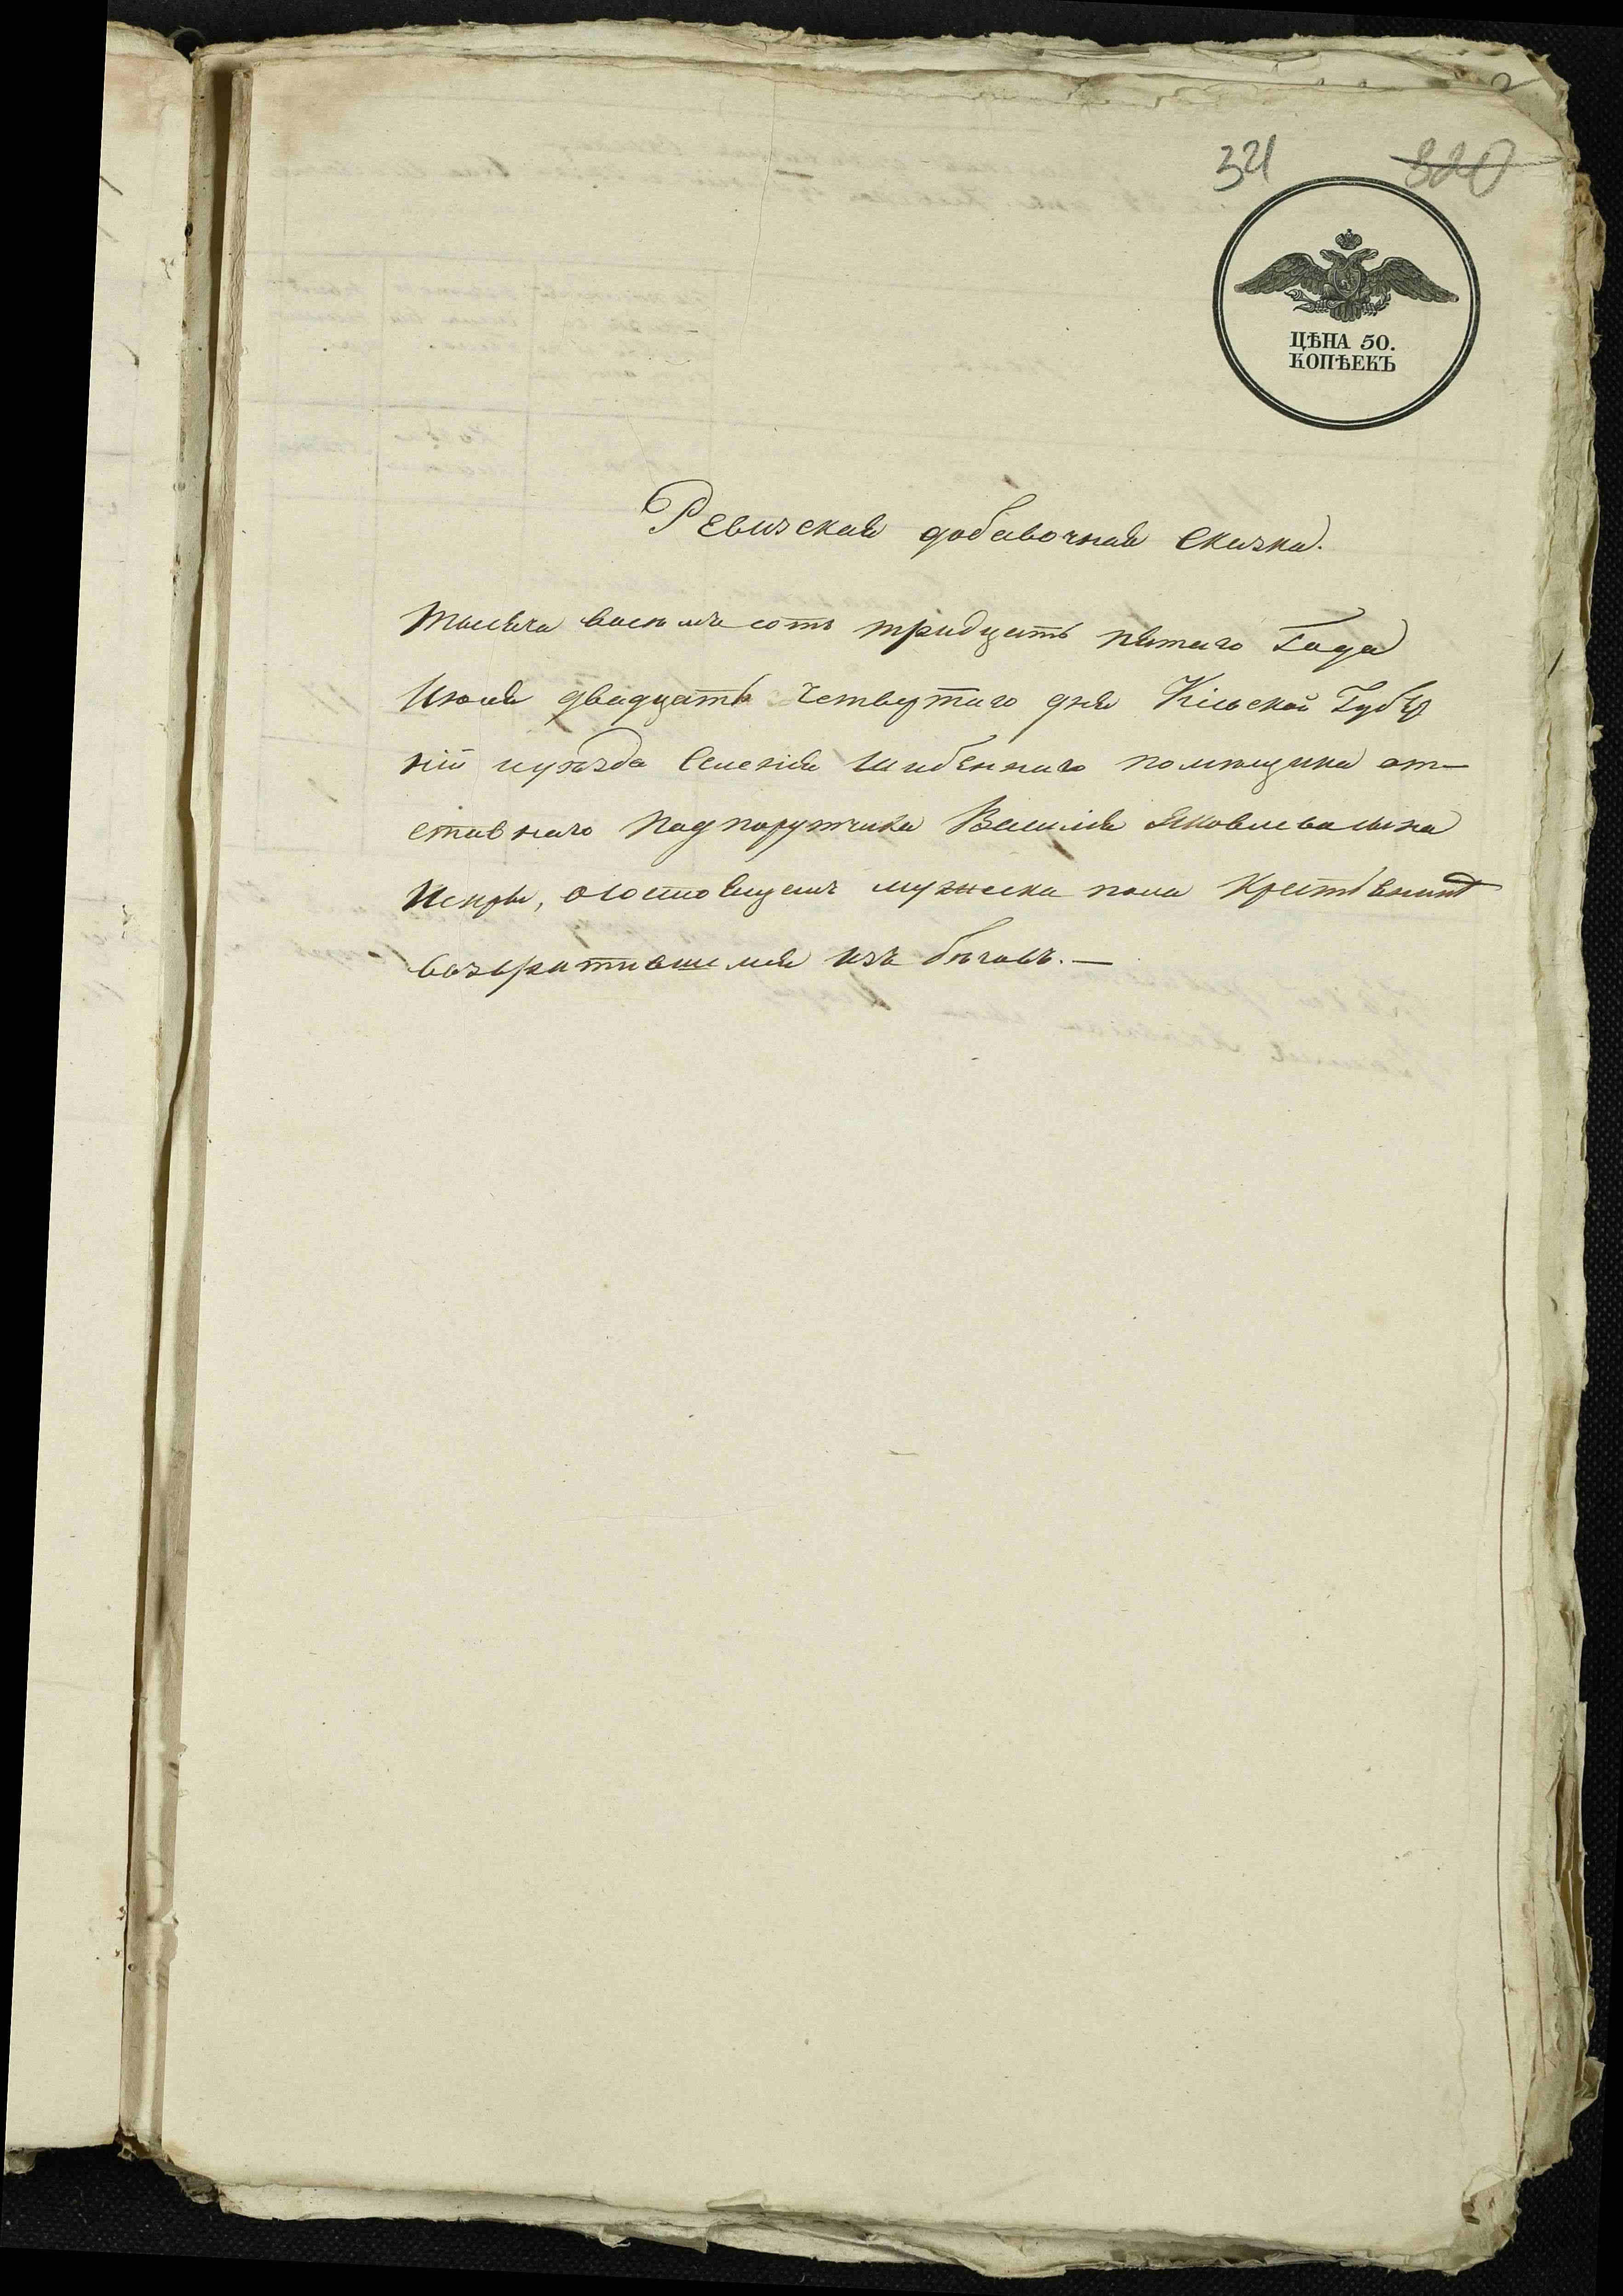 321 320
ЦѢНА 50.
КОПѢЕКЪ
Ревизская добавочная Сказка.
Тысеча восемъ сотъ тридцать пятаго Года
Июля двадцать Четвертаго дня Кіевской Губер
ніи и уѣзда Селенія Шибеннаго помѣщика от-
ставнаго Подпорутчика Василія Яковлева сына
Искры, о состоящемъ мужеска пола крестьянинѣ
возвратившемся изъ бѣговъ.—